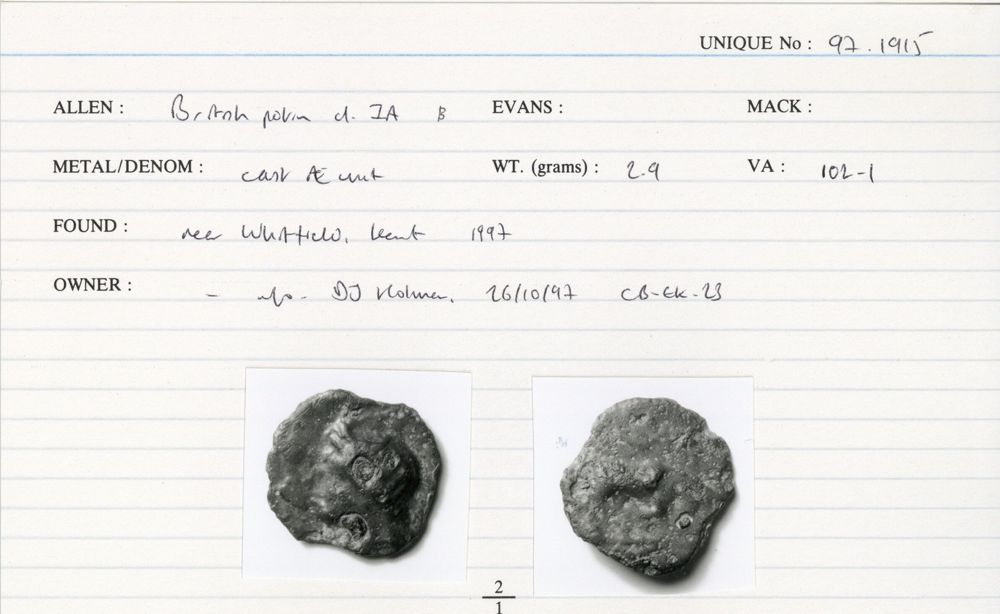 UNIQUE No : 97.1915
ALLEN : British potin cl. IA B EVANS : MACK :
METAL/DENOM : cast Æ unit WT. (grams) : 2.9 VA : 102-1
FOUND : near Whitfield, Kent 1997
OWNER : - info. DJ Holman, 26/10/97 CB-EK-23
2
1